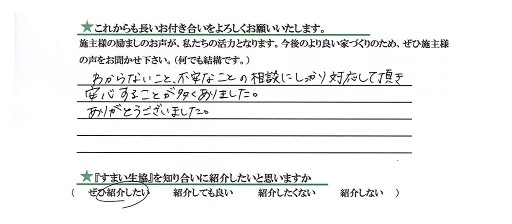 ★これからも長いお付き合いをよろしくお願いいたします。
施主様の励ましのお声が、私たちの活力となります。今後のより良い家づくりのため、ぜひ施主様
の声をお聞かせ下さい。(何でも結構です。)
わからないこと、不安なことの相談にしっかり対応して頂き
安心することが多くありました。
ありがとうございました。
★『すまい生協』を知り合いに紹介したいと思いますか
( ぜひ紹介したい 紹介しても良い 紹介したくない 紹介しない )